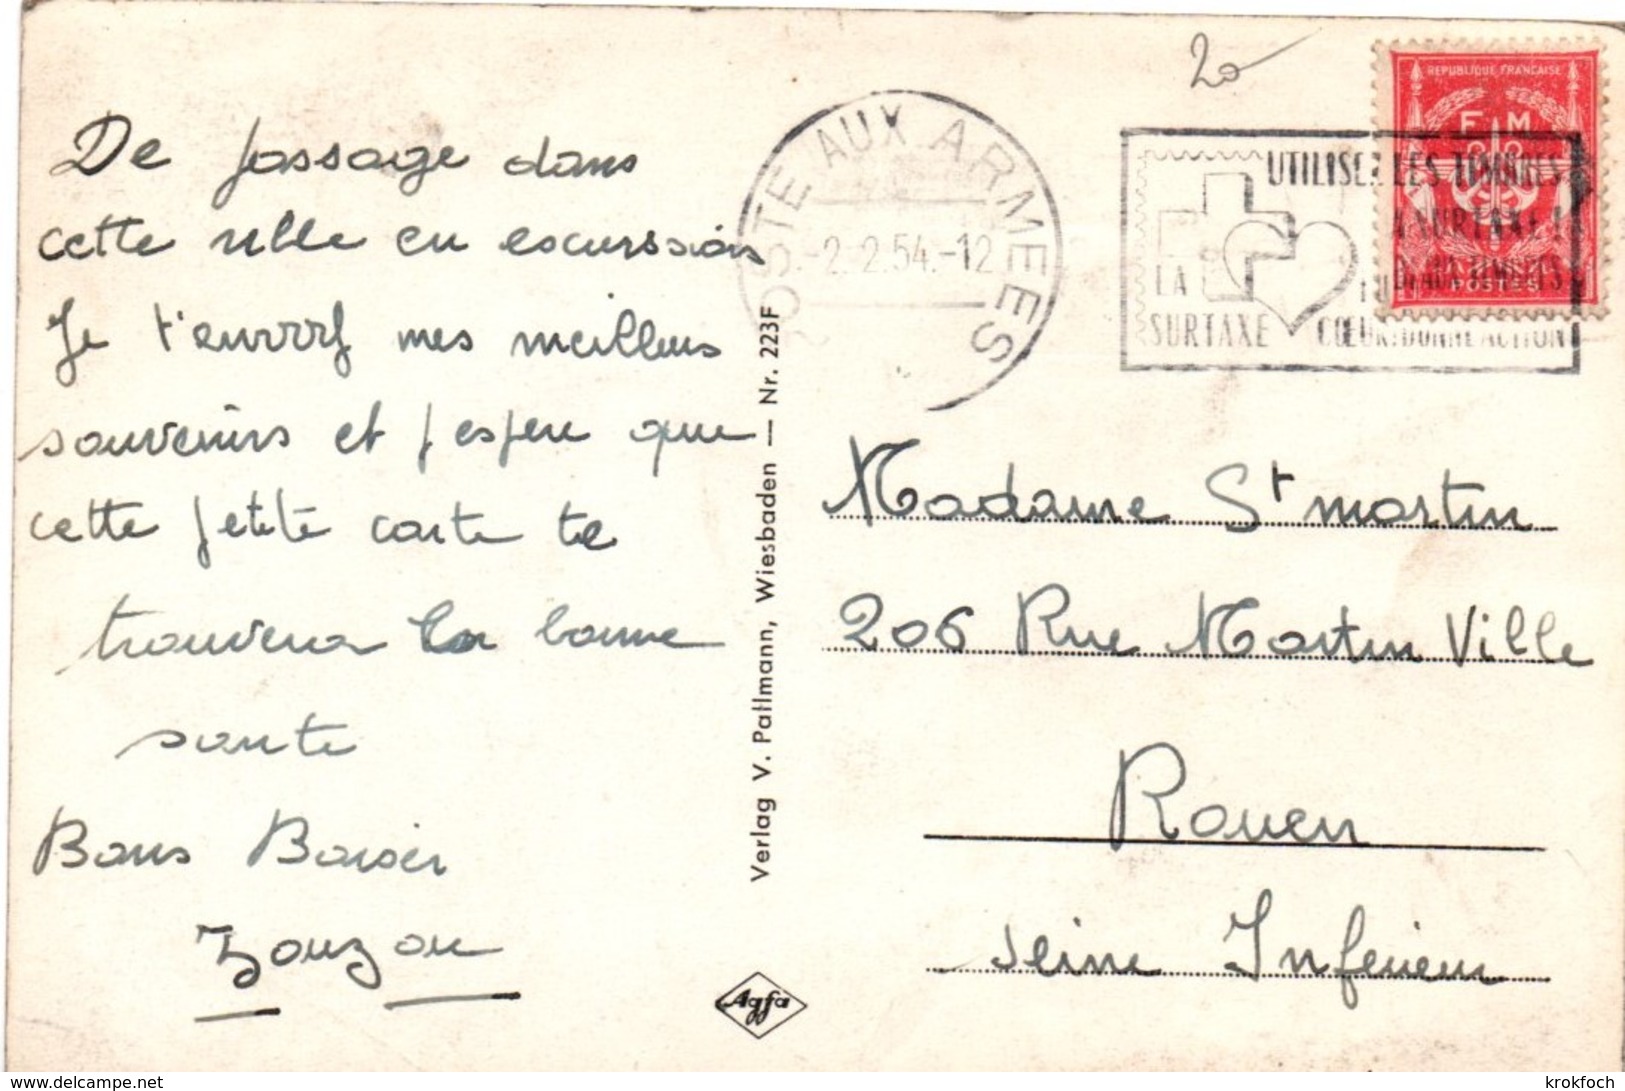 De passage dans
cette ville en escurssion
Je t'envoie mes meilleurs
souvenirs et j'espere que
cette petite carte te
trouvera en bonne
sante
Bons Baiser
Zouzou
Verlag V. Patlmann, Wiesbaden — Nr. 223F
Agfa
20
POSTE AUX ARMEES
-2.2.54.-12
REPUBLIQUE FRANÇAISE
F M
POSTES
UTILISEZ LES TIMBRES
A SURTAXE !
LA
SURTAXE
CŒUR: DONNE ACTION
Madame St martin
206 Rue Martin Ville
Rouen
Seine Inferieur
www.delcampe.net
krokfoch